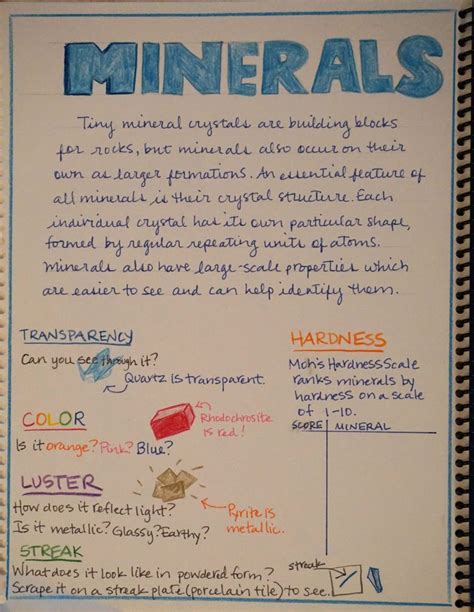 MINERALS
Tiny mineral crystals are building blocks
for rocks, but minerals also occur on their
own as larger formations. An essential feature of
all minerals is their crystal structure. Each
individual crystal has its own particular shape,
formed by regular repeating units of atoms.
Minerals also have large-scale properties which
are easier to see and can help identify them.
TRANSPARENCY
Can you see through it?
Quartz is transparent.
COLOR
Rhodochrosite
is red!
Is it orange? Pink? Blue?
LUSTER
How does it reflect light?
Is it metallic? Glassy? Earthy?
Pyrite is
metallic.
STREAK
What does it look like in powdered form?
Scrape it on a streak plate (porcelain tile) to see.
streak
HARDNESS
Moh's Hardness Scale
ranks minerals by
hardness on a scale
of 1-10.
SCORE MINERAL